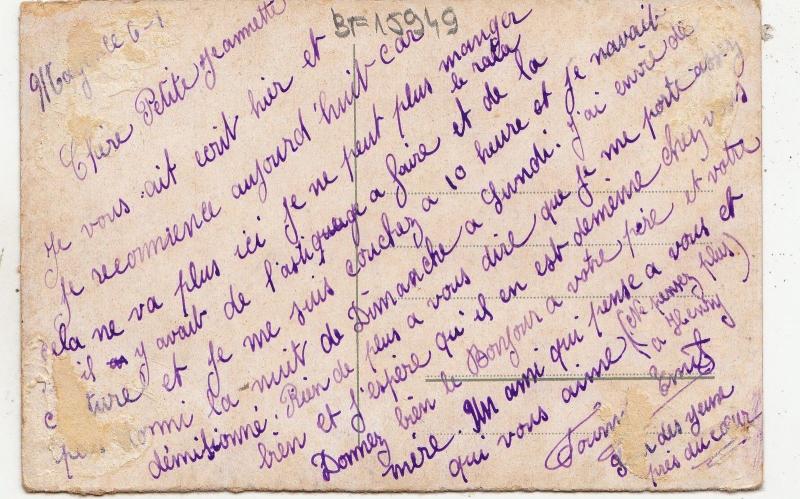 BF=15949
le 6-1
Chère Petite Jeannette
Je vous ait ecrit hier et
je recomsence aujourd'huit car
cela ne va plus ici je ne peut plus manger
le rata
il y avait de l'astiquage a faire et de la
ture et je me suis couchez a 10 heure et je n'avait
pas dormi la nuit de Dimanche a Lundi. J'ai envie de
démisionné. Rien de plus a vous dire que je me porte assez
bien et j'espère qu'il en est demème chez vous
Donnez bien le Bonjour a votre père et votre
mère. Un ami qui pense a vous et
qui vous aime (Ne pensez plus
a Henry)
Emile
Fourni
des yeux
près du cœur